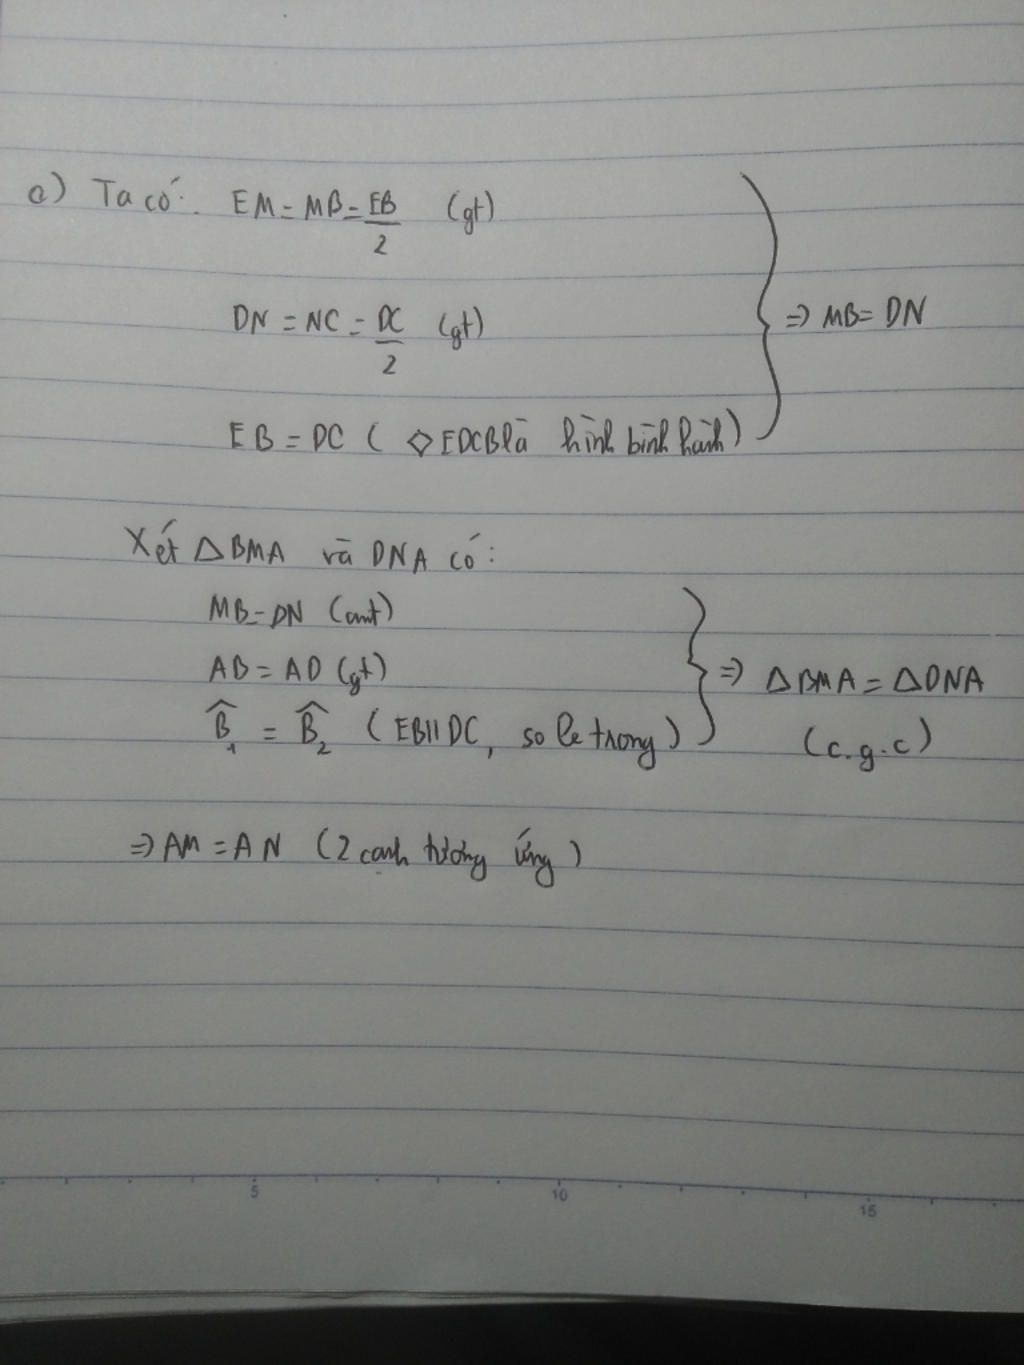 a) Ta có: EM = MB = EB/2 (gt)
DN = NC = DC/2 (gt)
⇒ MB = DN
EB = DC ( ◇ EDCB là hình bình hành)
Xét △BMA và DNA có:
MB = DN (cmt)
AB = AD (gt)
⇒ △BMA = △DNA
B̂₁ = B̂₂ (EB // DC, so le trong)
(c.g.c)
⇒ AM = AN (2 cạnh tương ứng)
5 10 15